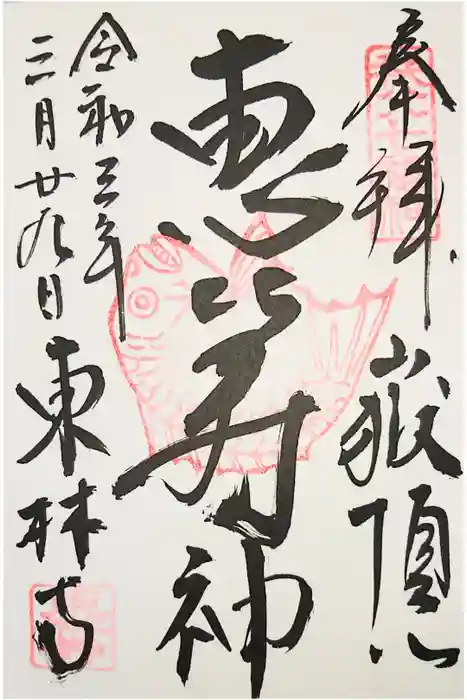 奉拝 嶽頂山
恵寿神
令和三年
三月廿九日 東林寺